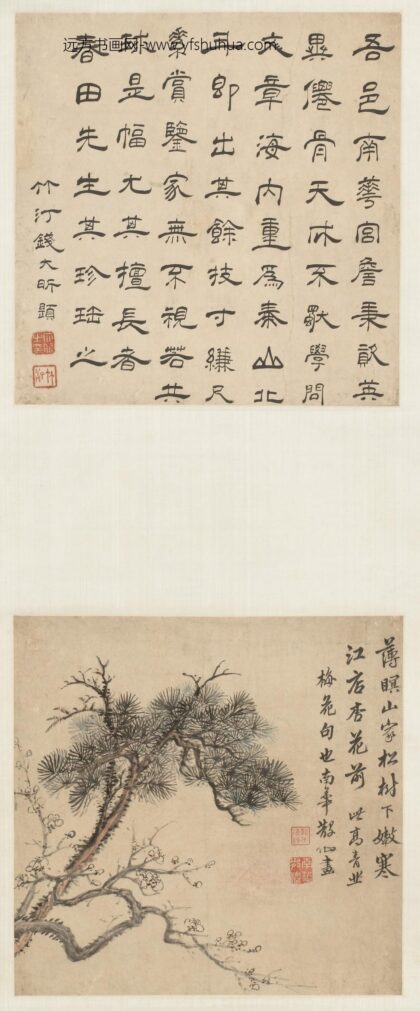 远方书画网 www.yfshuhua.com
吾邑南蕐宮詹秉資英
異僊骨天成不學問
文章海內重爲泰山北
斗即出其餘技寸縑尺
素賞鑒家無不視若共
球是幅尤其擅長者
春田先生其珍珤之
竹汀錢大昕題
薄暝山家松樹下嫩寒
江店杏花前 此高青邱
梅花句也南華散仙畫